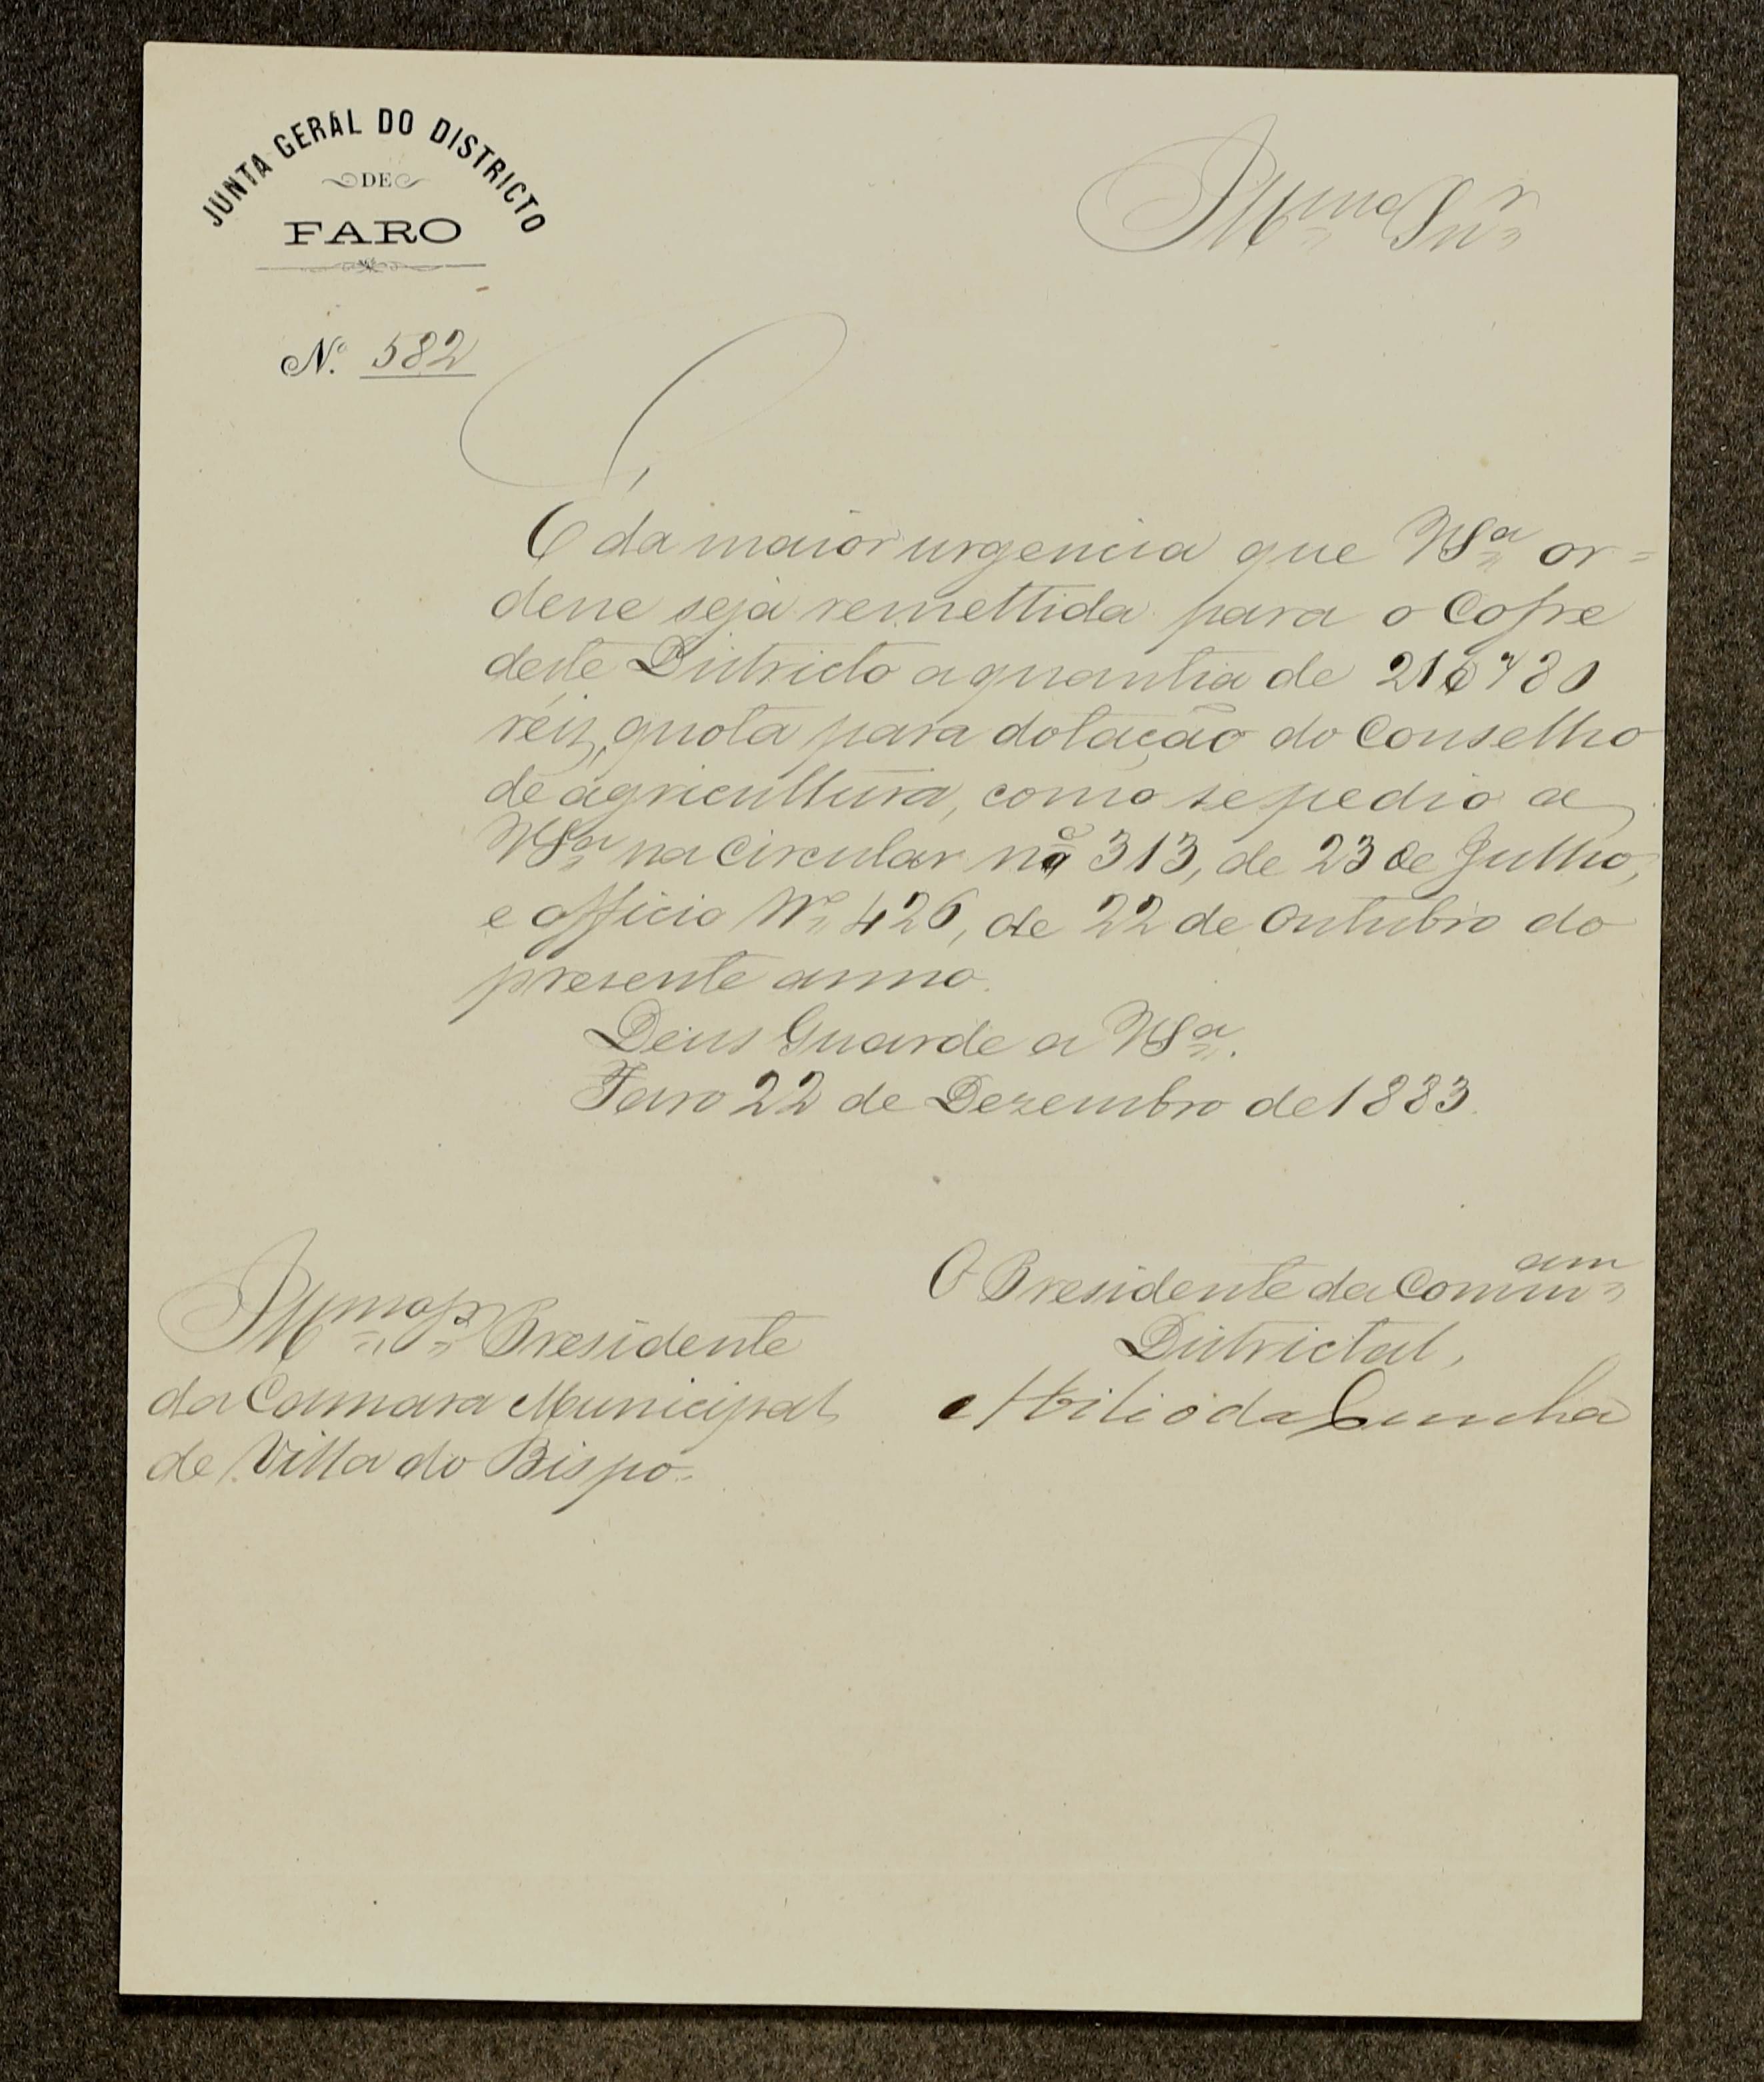 JUNTA GERAL DO DISTRICTO
DE
FARO
N.º 582
Illmo Snr
É da maior urgencia que VSª or=
dene seja remettida para o Cofre
deste Districto a quantia de
réis, quota para dotação do Conselho
de agricultura, como se pedio a
VSª na circular nº 313, de 23 de Julho,
e officio Nº 426, de 22 de Outubro do
presente anno.
Deus Guarde a VSª.
Faro 22 de Dezembro de 1883.
O Presidente da Commam
Districtal,
Abilio da Cunha
Illmo Sr Presidente
da Camara Municipal
de Villa do Bispo.